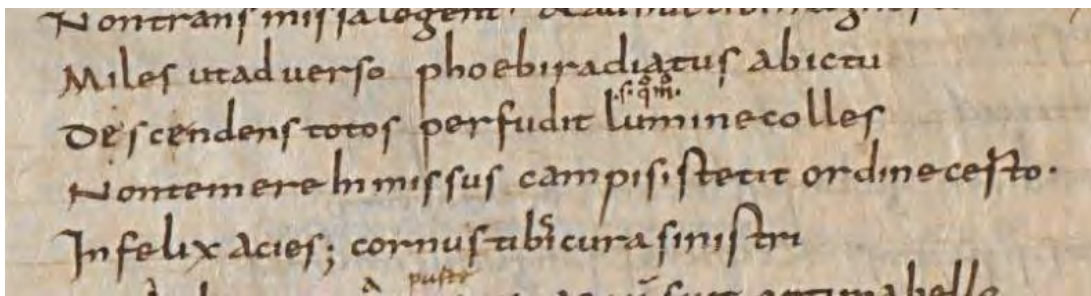 Miles ut adverso phoebi radiatus ab ictu
.s. qm.
Descendens totos perfudit lumine colles
Non temere Inmissus campis. stetit ordine cesto.
Infelix acies; cornus tibi cura sinistri